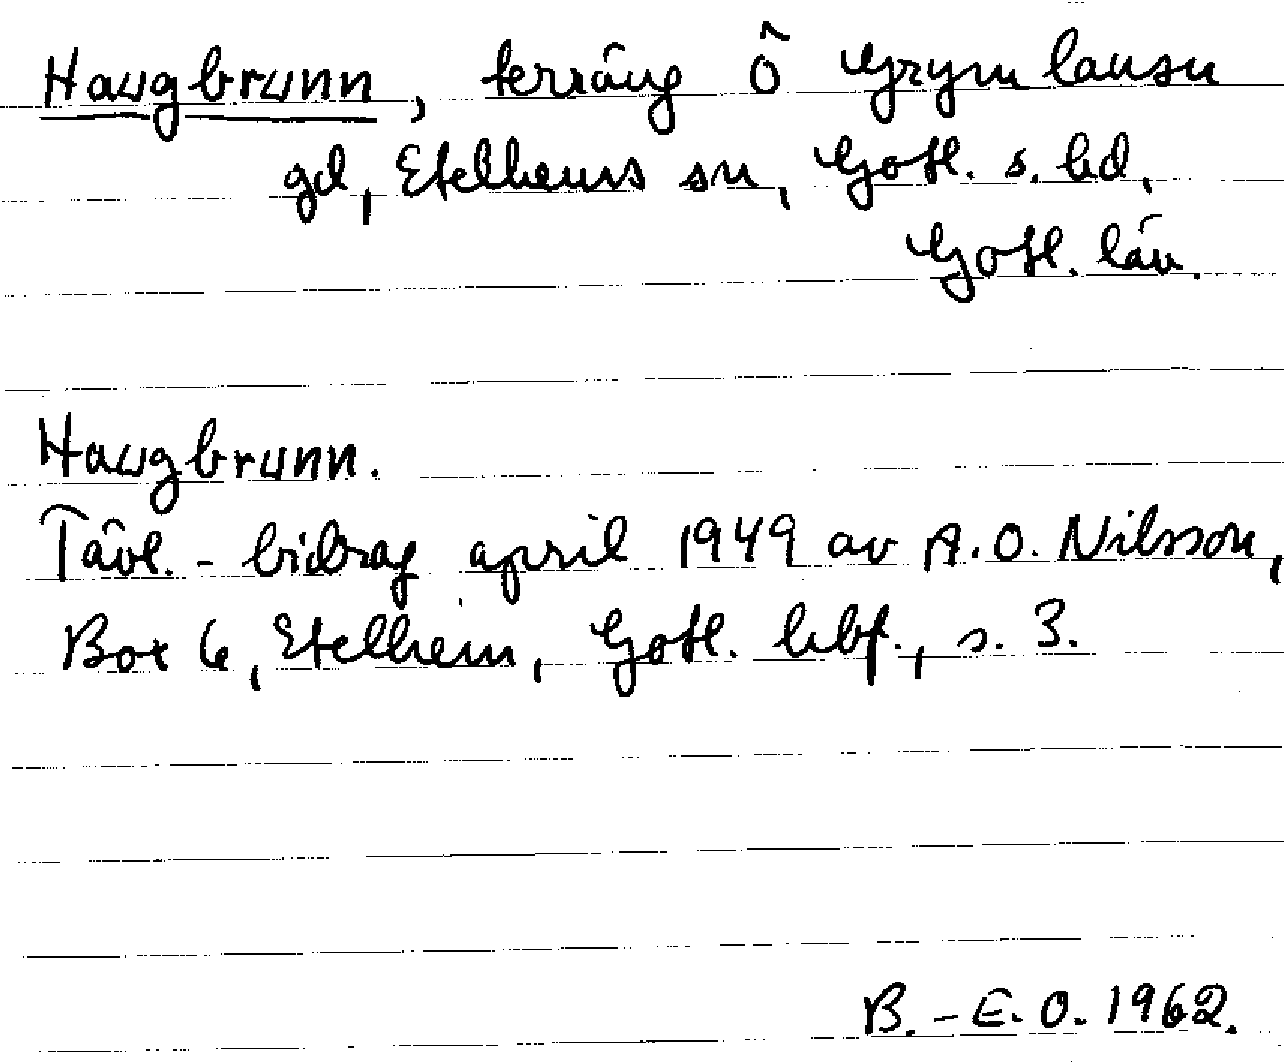 Haugbrunn, terräng Ö Grymlausu
gd, Etelhems sn, Gotl. s. hd,
Gotl. län.
Haugbrunn.
Tävl.-bidrag april 1949 av A. O. Nilsson,
Box 6, Etelhem, Gotl. hbf., s. 3.
B.-E. O. 1962.